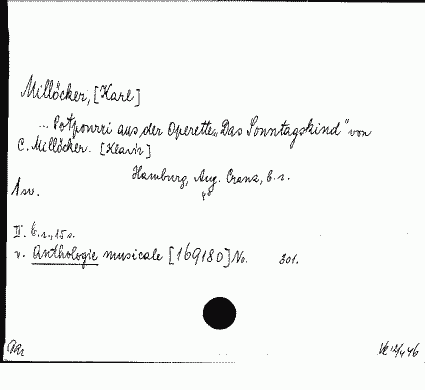 Millöcker, [Karl]
... Potpourri aus der Operette „Das Sonntagskind" von
C. Millöcker. [Klavir]
Hamburg, Aug. Cranz, b. r.
4°
1 sv.
II. b. r., 15 s.
v. Anthologie musicale [169180] No. 301.